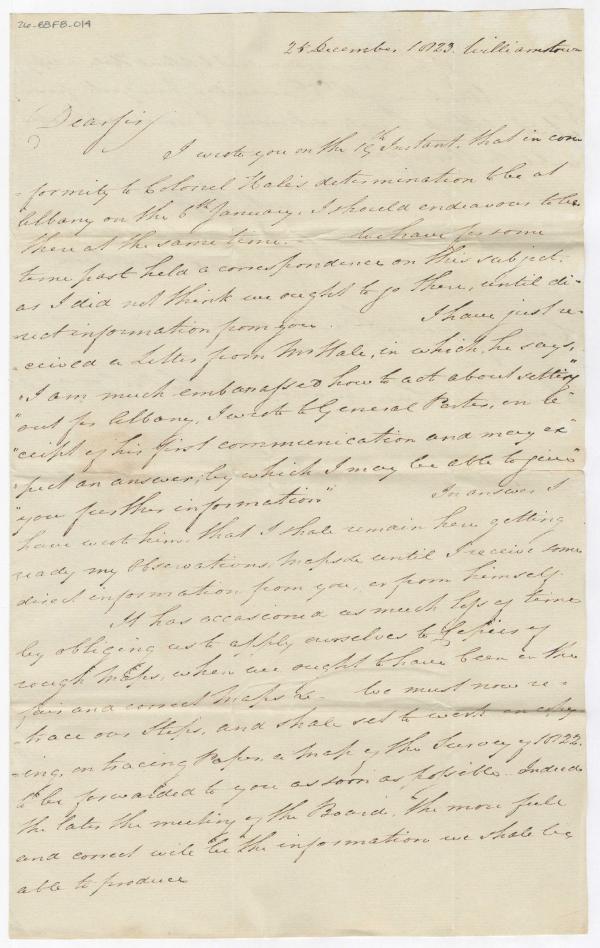 26-BBF8-014
25 December 1823. Williamstown
Dear Sir
I wrote you on the 19th Instant, that in con
-formity to Colonel Hale's determination to be at
Albany on the 6th January, I should endeavour to be
there at the same time. - We have for some
time past held a correspondence on this subject.
as I did not think we ought to go there, until di-
rect information from you. I have just re-
-ceived a Letter from Mr Hale, in which he says,
"I am much embarrassed how to act about setting"
"out for Albany, I wrote to General Porter, on re"
"ceipt of his first communication and may ex"
"pect an answer, by which I may be able to give"
"you further information" In answer I
have wrote him, that I shall remain here getting
ready my Observations, Maps &c until I receive some
direct information from you, or from himself.
It has occasioned us much loss of time
by obliging us to apply ourselves to Copies of
rough Maps, when we ought to have been on the
fair and correct Maps &c - We must now re-
-trace our Steps, and shall set to work on copy
-ing, on tracing Paper, a Map of the Survey of 1822.
to be forwarded to you as soon as possible. Indeed
the later the meeting of the Board, the more full
and correct will be the information we shall be
able to produce